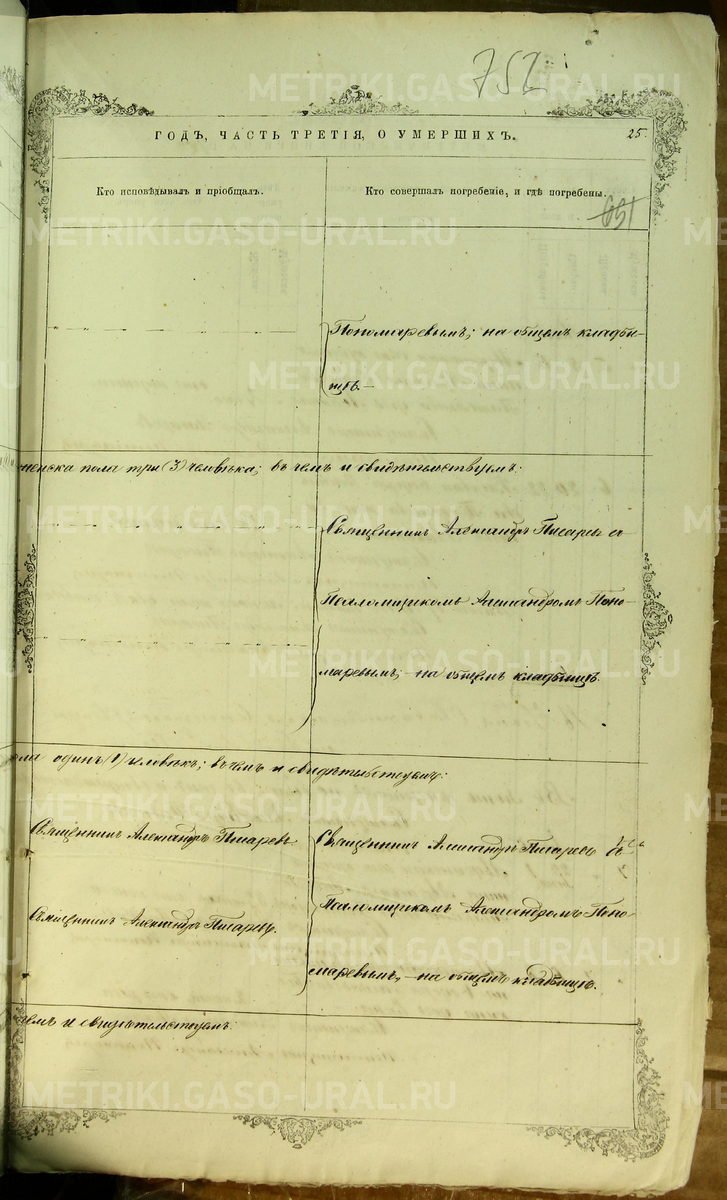 752
ГОДЪ, ЧАСТЬ ТРЕТІЯ, О УМЕРШИХЪ.
25.
Кто исповѣдывалъ и пріобщалъ.
Кто совершалъ погребеніе, и гдѣ погребены.
651
Пономаревымъ; на общемъ кладби-
щѣ.—
женска пола три (3) человѣка; въ чемъ и свидѣтельствуемъ:
Священникъ Александръ Писаревъ съ
Псаломщикомъ Александромъ Поно-
маревымъ; на общемъ кладбищѣ.
пола одинъ (1) человѣкъ; въ чемъ и свидѣтельствуемъ:
Священникъ Александръ Писаревъ
Священникъ Александръ Писаревъ съ
Священникъ Александръ Писаревъ.
Псаломщикомъ Александромъ Поно-
маревымъ, на общемъ кладбищѣ.
чемъ и свидѣтельствуемъ:
METRIKI.GASO-URAL.RU